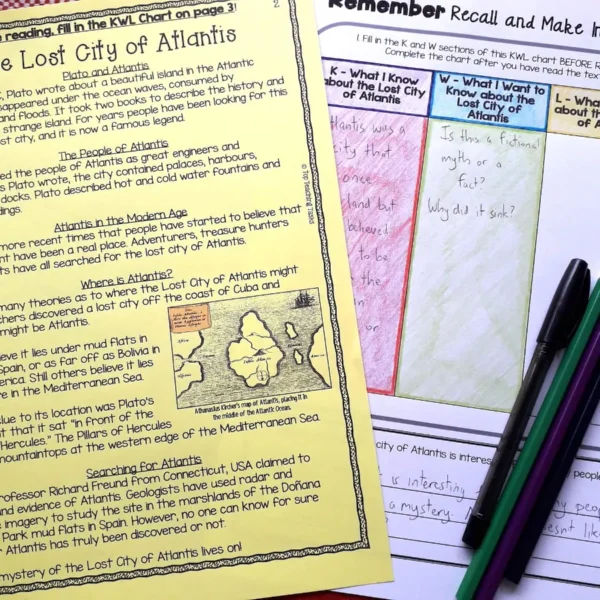 reading, fill in the KWL Chart on page 3!
2
Lost City of Atlantis
Plato and Atlantis
Plato wrote about a beautiful island in the Atlantic
under the ocean waves, consumed by
and floods. It took two books to describe the history and
strange island. For years people have been looking for this
city, and it is now a famous legend.
The People of Atlantis
the people of Atlantis as great engineers and
Plato wrote, the city contained palaces, harbours,
docks. Plato described hot and cold water fountains and
Atlantis in the Modern Age
more recent times that people have started to believe that
have been a real place. Adventurers, treasure hunters
have all searched for the lost city of Atlantis.
Where is Atlantis?
many theories as to where the Lost City of Atlantis might
discovered a lost city off the coast of Cuba and
might be Atlantis.
it lies under mud flats in
Spain, or as far off as Bolivia in
Still others believe it lies
in the Mediterranean Sea.
Athanasius Kircher's map of Atlantis, placing it in
the middle of the Atlantic Ocean.
to its location was Plato's
that it sat "in front of the
Hercules." The Pillars of Hercules
mountaintops at the western edge of the Mediterranean Sea.
Searching for Atlantis
Professor Richard Freund from Connecticut, USA claimed to
evidence of Atlantis. Geologists have used radar and
imagery to study the site in the marshlands of the Doñana
Park mud flats in Spain. However, no one can know for sure
Atlantis has truly been discovered or not.
mystery of the Lost City of Atlantis lives on!
© Top Teaching Tasks
Remember Recall and Make
1. Fill in the K and W sections of this KWL chart BEFORE
Complete the chart after you have read the
K - What I Know
about the Lost City
of Atlantis
was a
city that
once
land but
believed
to be
the
or
W - What I Want to
Know about the
Lost City of
Atlantis
Is this a fictional
myth or a
fact?
Why did it sink?
L - What
about the
of
city of Atlantis is
people
is interesting
a mystery.